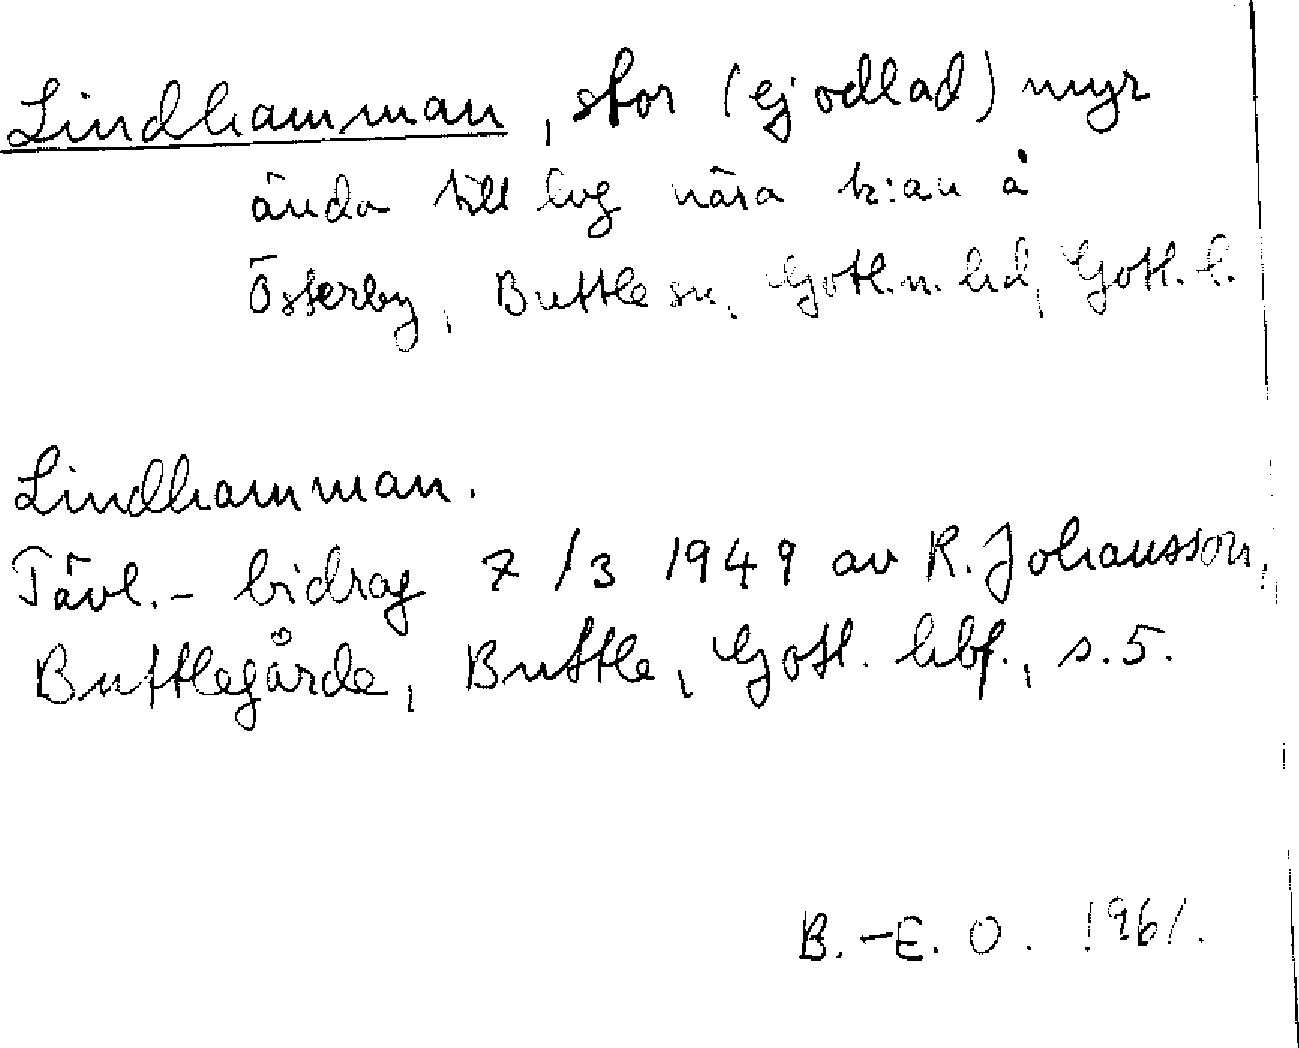 Lindhamman, stor (ej odlad) myr
ända till lug nära k:an å
Österby, Buttle sn, Gotl.n. hd, Gotl. l.
Lindhamman.
Tävl.- bidrag 7/3 1949 av R. Johansson,
Buttlegårde, Buttle, Gotl. hbf., s. 5.
B.-E. O. 1961.